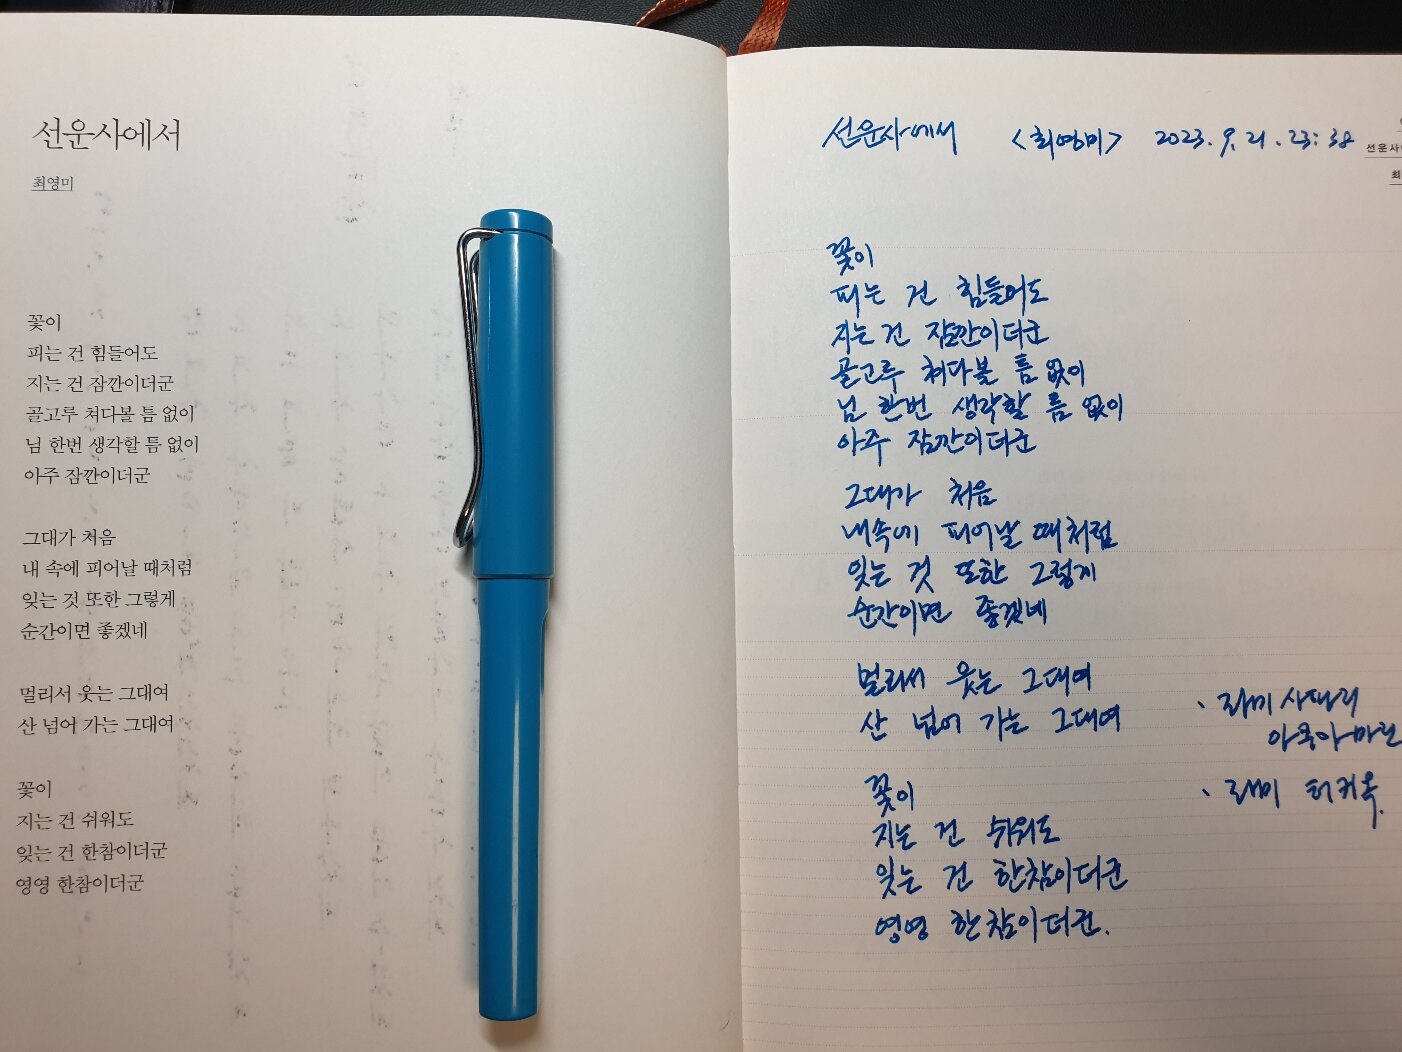 선운사에서
최영미
꽃이
피는 건 힘들어도
지는 건 잠깐이더군
골고루 쳐다볼 틈 없이
님 한번 생각할 틈 없이
아주 잠깐이더군
그대가 처음
내 속에 피어날 때처럼
잊는 것 또한 그렇게
순간이면 좋겠네
멀리서 웃는 그대여
산 넘어 가는 그대여
꽃이
지는 건 쉬워도
잊는 건 한참이더군
영영 한참이더군
선운사에서 <최영미> 2023. 9. 21. 23:38
선운사
최
꽃이
피는 건 힘들어도
지는 건 잠깐이더군
골고루 쳐다볼 틈 없이
님 한번 생각할 틈 없이
아주 잠깐이더군
그대가 처음
내속에 피어날 때처럼
잊는 것 또한 그렇게
순간이면 좋겠네
멀리서 웃는 그대여
산 넘어 가는 그대여
꽃이
지는 건 쉬워도
잊는 건 한참이더군
영영 한참이더군.
· 라미 사파리
아쿠아마린
· 라미 터키옥.